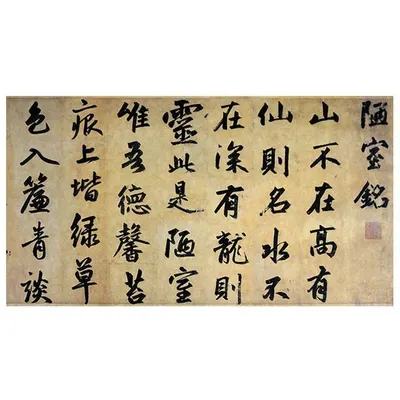 陋室銘
山不在高有
仙則名水不
在深有龍則
靈此是陋室
唯吾德馨苔
痕上堦緑草
色入簾青談